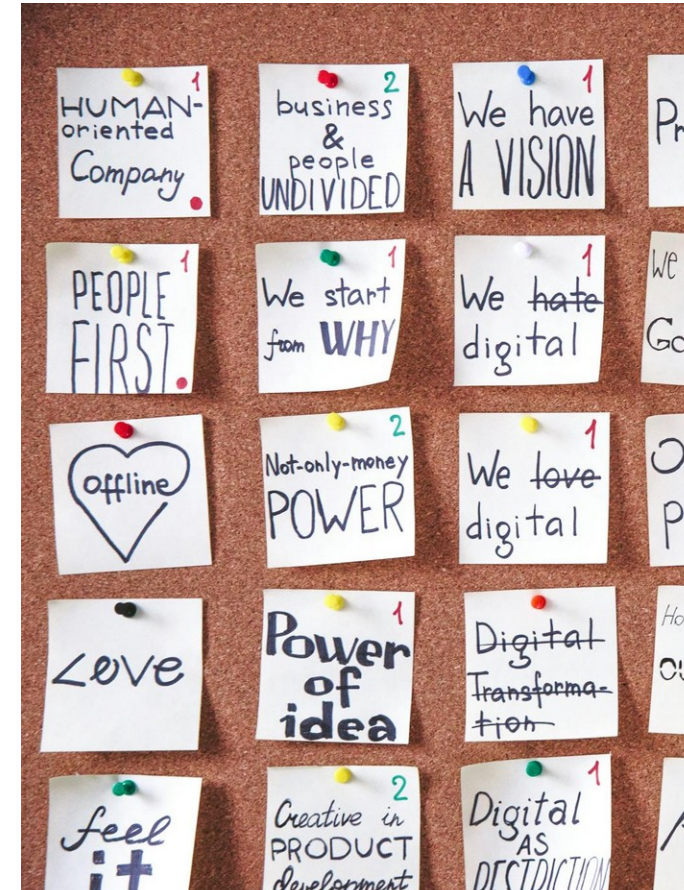 1
HUMAN-
oriented
Company
2
business
&
people
UNDIVIDED
1
We have
A VISION
Pr
1
PEOPLE
FIRST
1
We start
from WHY
1
We hate
digital
We
Go
Offline
2
Not-only-money
POWER
1
We love
digital
O
P
Love
1
Power
of
idea
Digital
Transforma-
tion
Ho
feel
it
2
Creative in
PRODUCT
development
1
Digital
AS